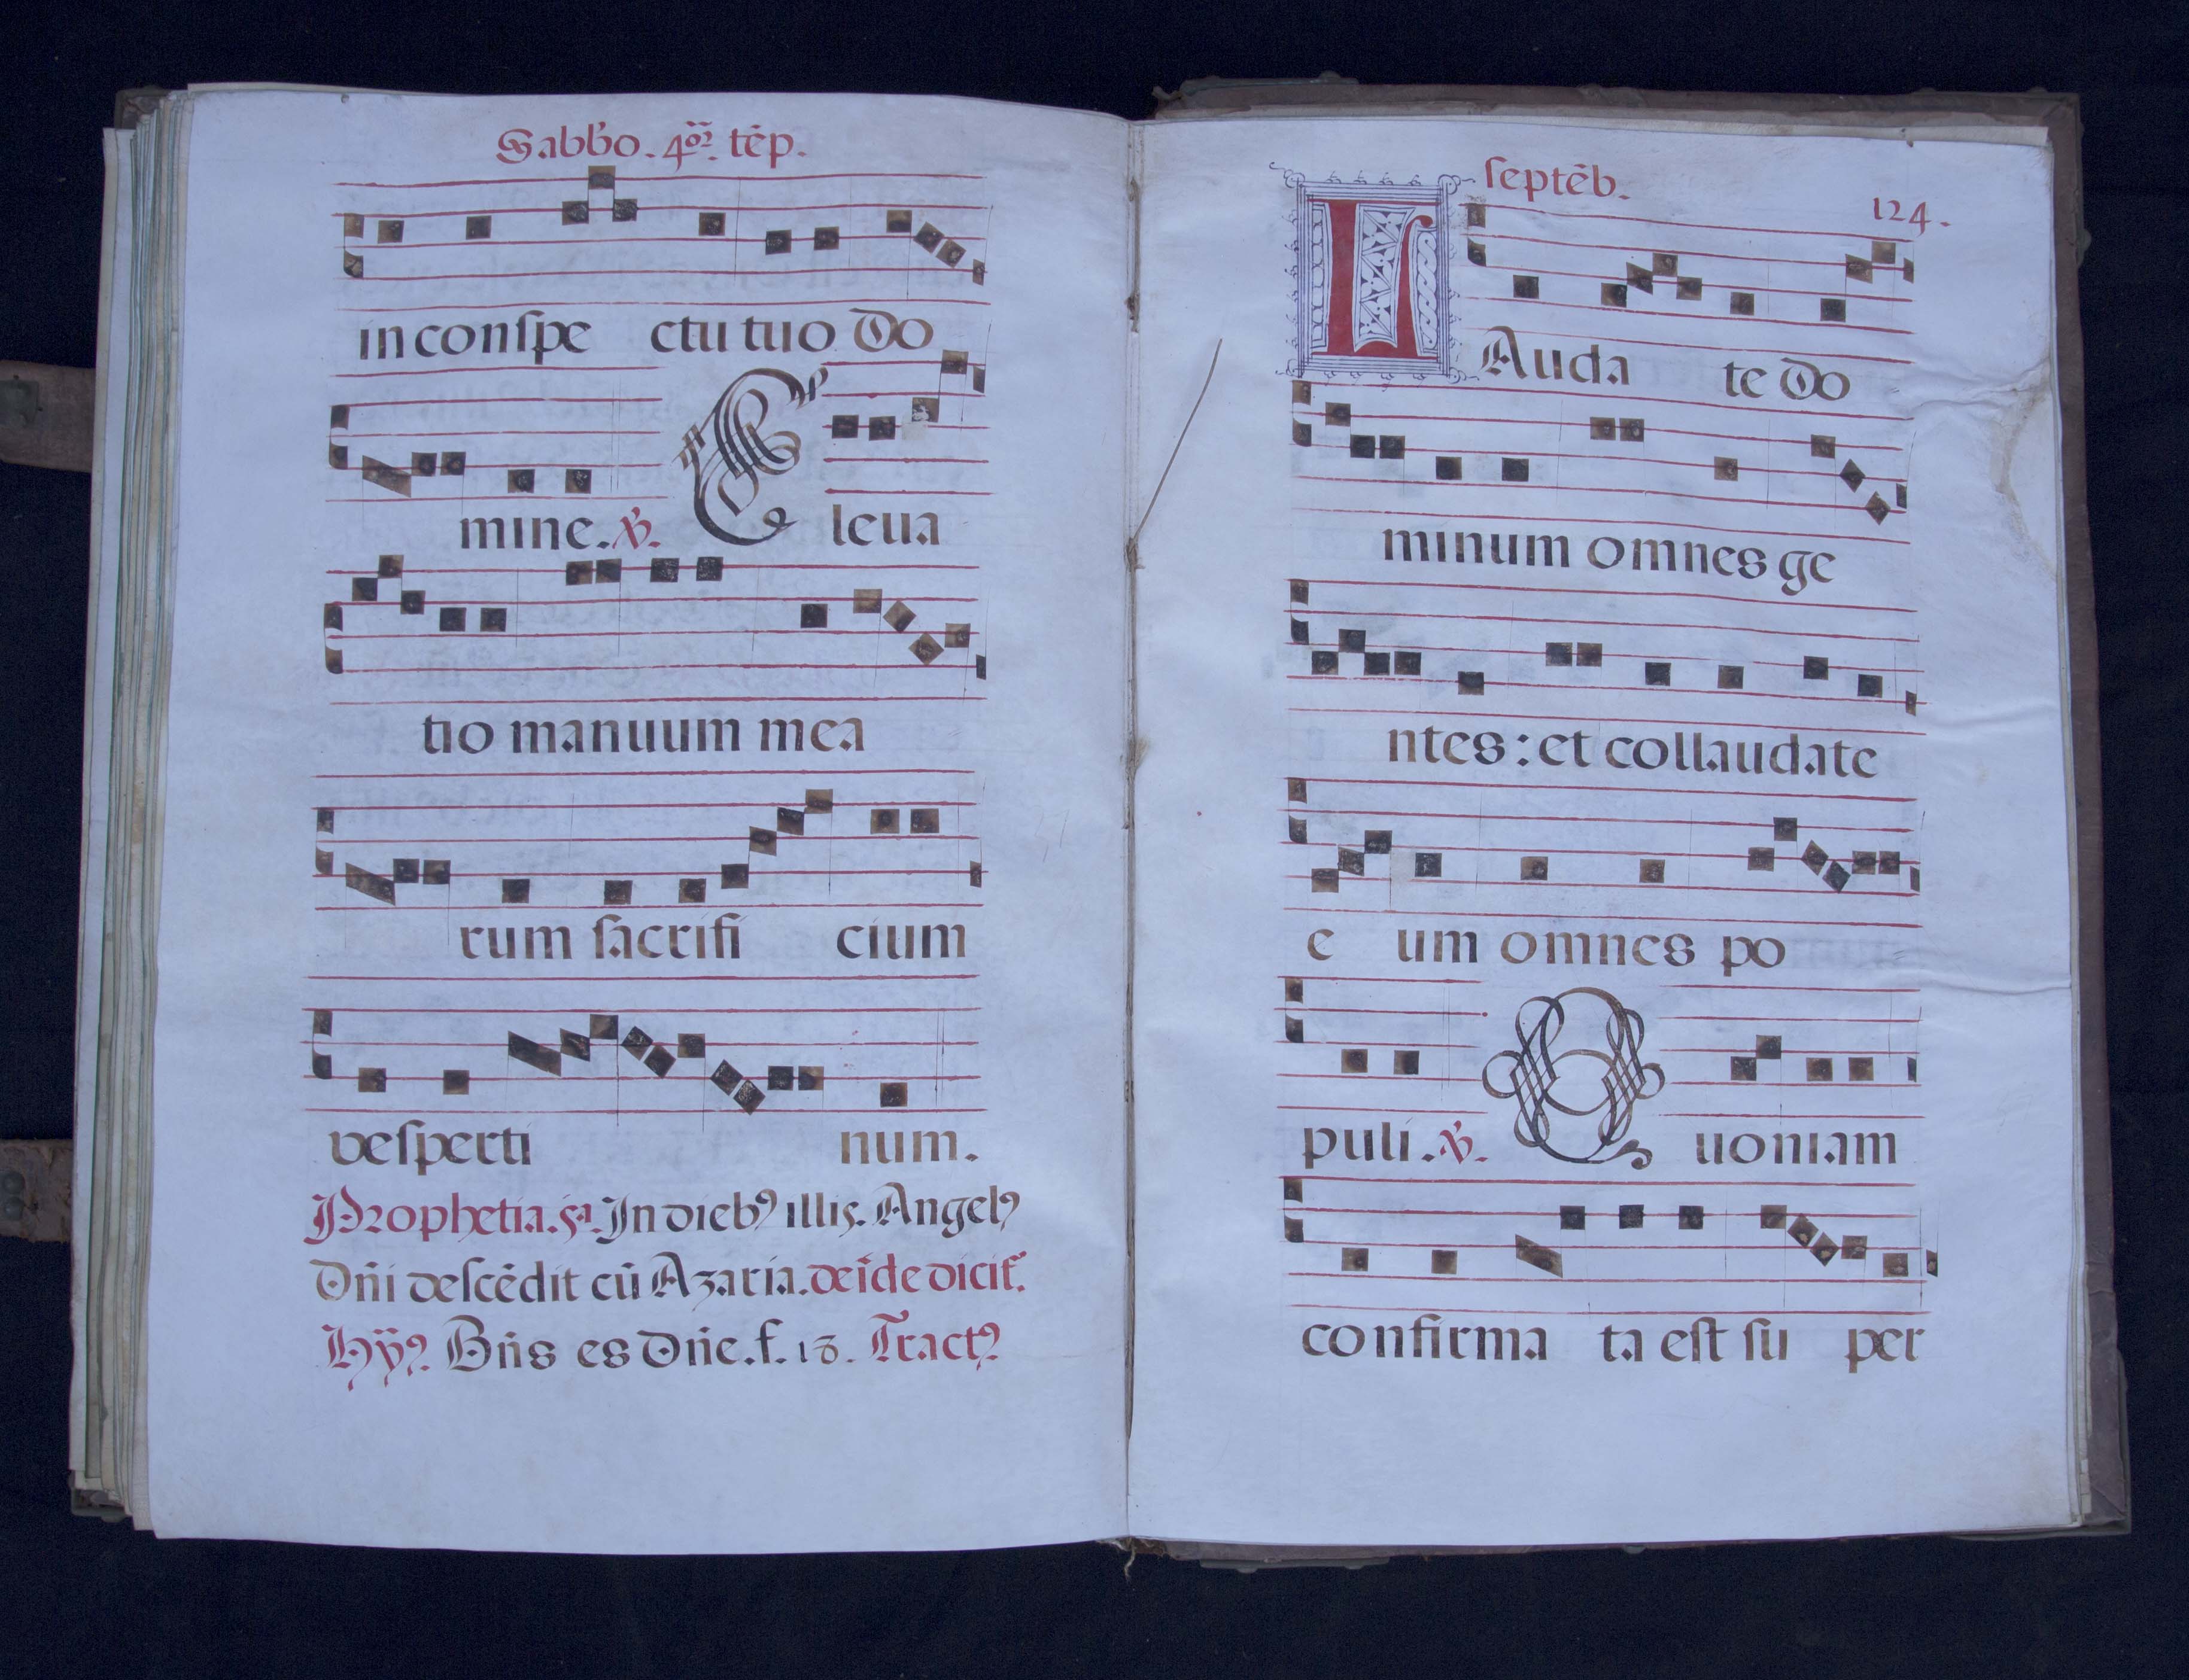 Sabb̃o. 4or. tẽp.
in conſpe ctu tuo Do
mine. ℣. Eleua
tio manuum mea
rum ſacrifi cium
veſperti num.
Prophetia. 5a. In diebꝰ illis. Angelꝰ
Dñi deſcẽdit cũ Azaria. deĩde dicit᷑.
Hỹꝰ. Bñs es Dñe. f. 18. Tractꝰ
ſeptẽb.
124.
LAuda te Do
minum omnes ge
ntes: et collaudate
e um omnes po
puli. ℣. Quoniam
confirma ta eſt ſu per